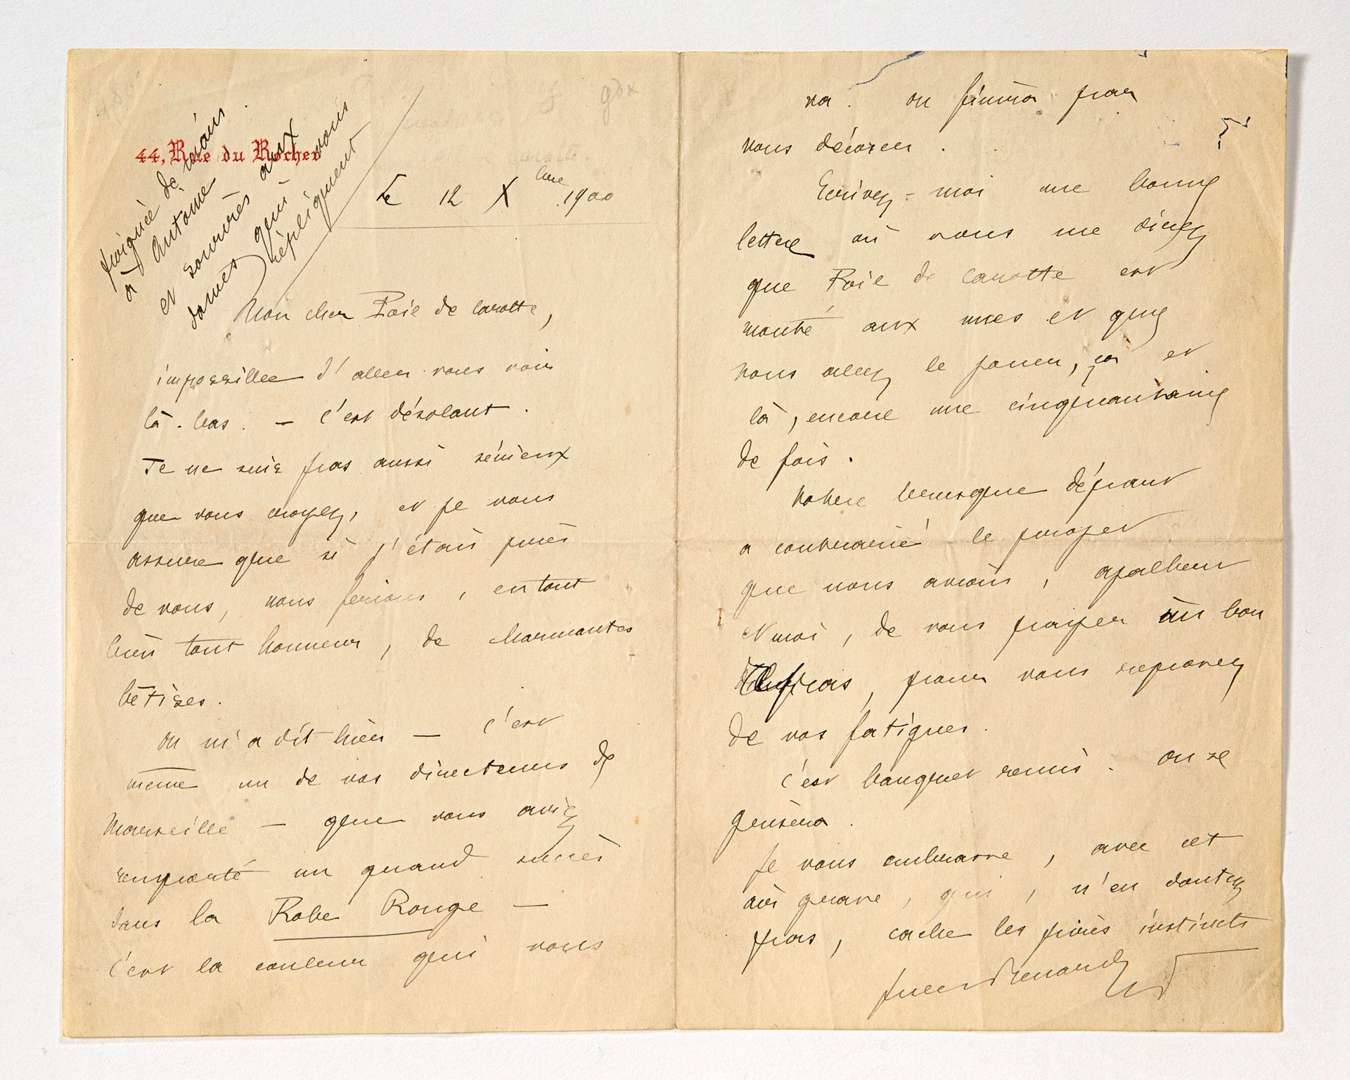 44, Rue du Rocher
poignée de mains
à Antoine
et sourires aux
dames qui vous
répliquent
Le 12 Xbre 1900
Mon cher Poil de Carotte,
impossible d'aller vous voir
là-bas. — C'est désolant.
Je ne suis pas aussi sérieux
que vous croyez, et je vous
assure que si j'étais près
de vous, nous ferions, en tout
bien tout honneur, de charmantes
bêtises.
On m'a dit hier — c'est
même un de vos directeurs de
Marseille — que vous aviez
remporté un grand succès
dans la Robe Rouge —
C'est la couleur qui vous
va. On finira par
vous décorer.
Ecrivez-moi une bonne
lettre où vous me direz
que Poil de Carotte est
monté aux nues et que
vous allez le jouer, çà et
là, encore une cinquantaine
de fois.
Votre brusque départ
a contrarié le projet
que nous avions,
et moi, de vous payer un bon
repas, pour vous reposer
de vos fatigues.
C'est banquet remis. On se
grisera.
Je vous embrasse, avec cet
air grave, qui, n'en doutez
pas, cache les pires instincts
Jules Renard